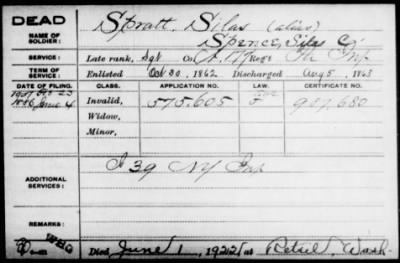 DEAD
NAME OF SOLDIER: Spratt, Silas (alias)
Spence, Silas C.
SERVICE: Late rank, Sgt Co. A, 177 Reg't Inf
TERM OF SERVICE: Enlisted Oct 30, 1862 Discharged Aug 5, 1863
DATE OF FILING. CLASS. APPLICATION NO. LAW. CERTIFICATE NO.
June 4 Invalid, 575.605 907.680
Widow,
Minor,
ADDITIONAL SERVICES: I 39 NY Inf
REMARKS: WHG
Died June 1, 1922, at Retsil, Wash.